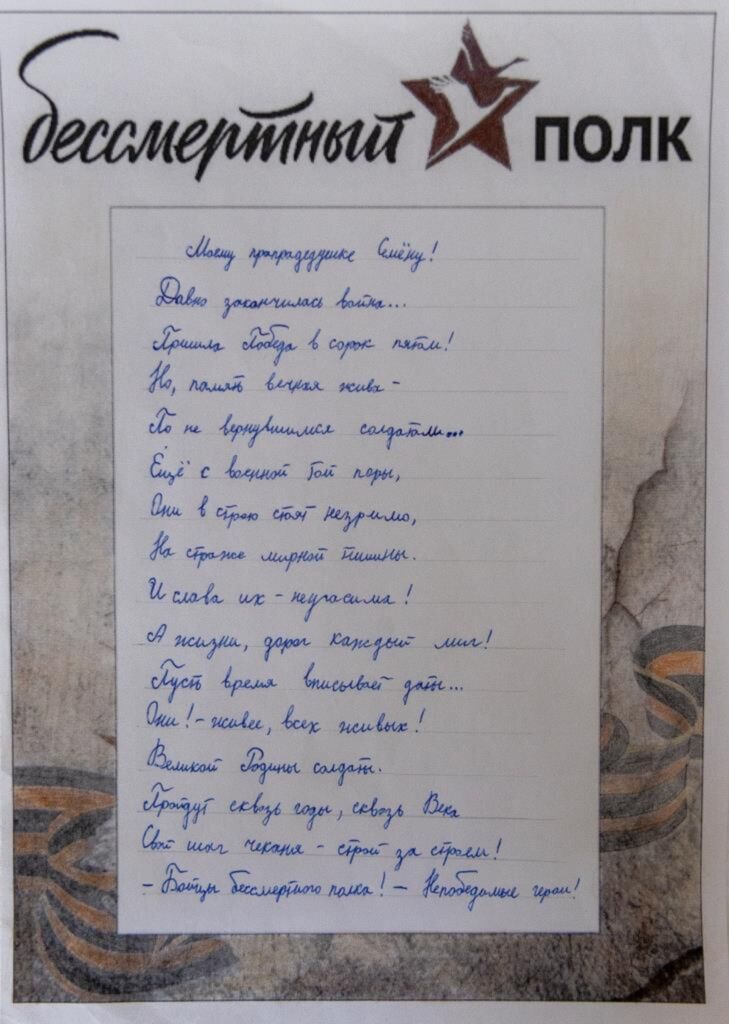 бессмертный полк
Моему прапрадедушке Семёну!
Давно закончилась война...
Пришла Победа в сорок пятом!
Но, память вечная жива -
По не вернувшимся солдатам...
Ещё с военной той поры,
Они в строю стоят незримо,
На страже мирной тишины.
И слава их - неугасима!
А жизни, дорог каждый миг!
Пусть время вписывает даты...
Они! - живее, всех живых!
Великой Родины солдаты.
Пройдут сквозь годы, сквозь Века
Свой шаг чеканя - строй за строем!
- Бойцы бессмертного полка! - Непобедимые герои!